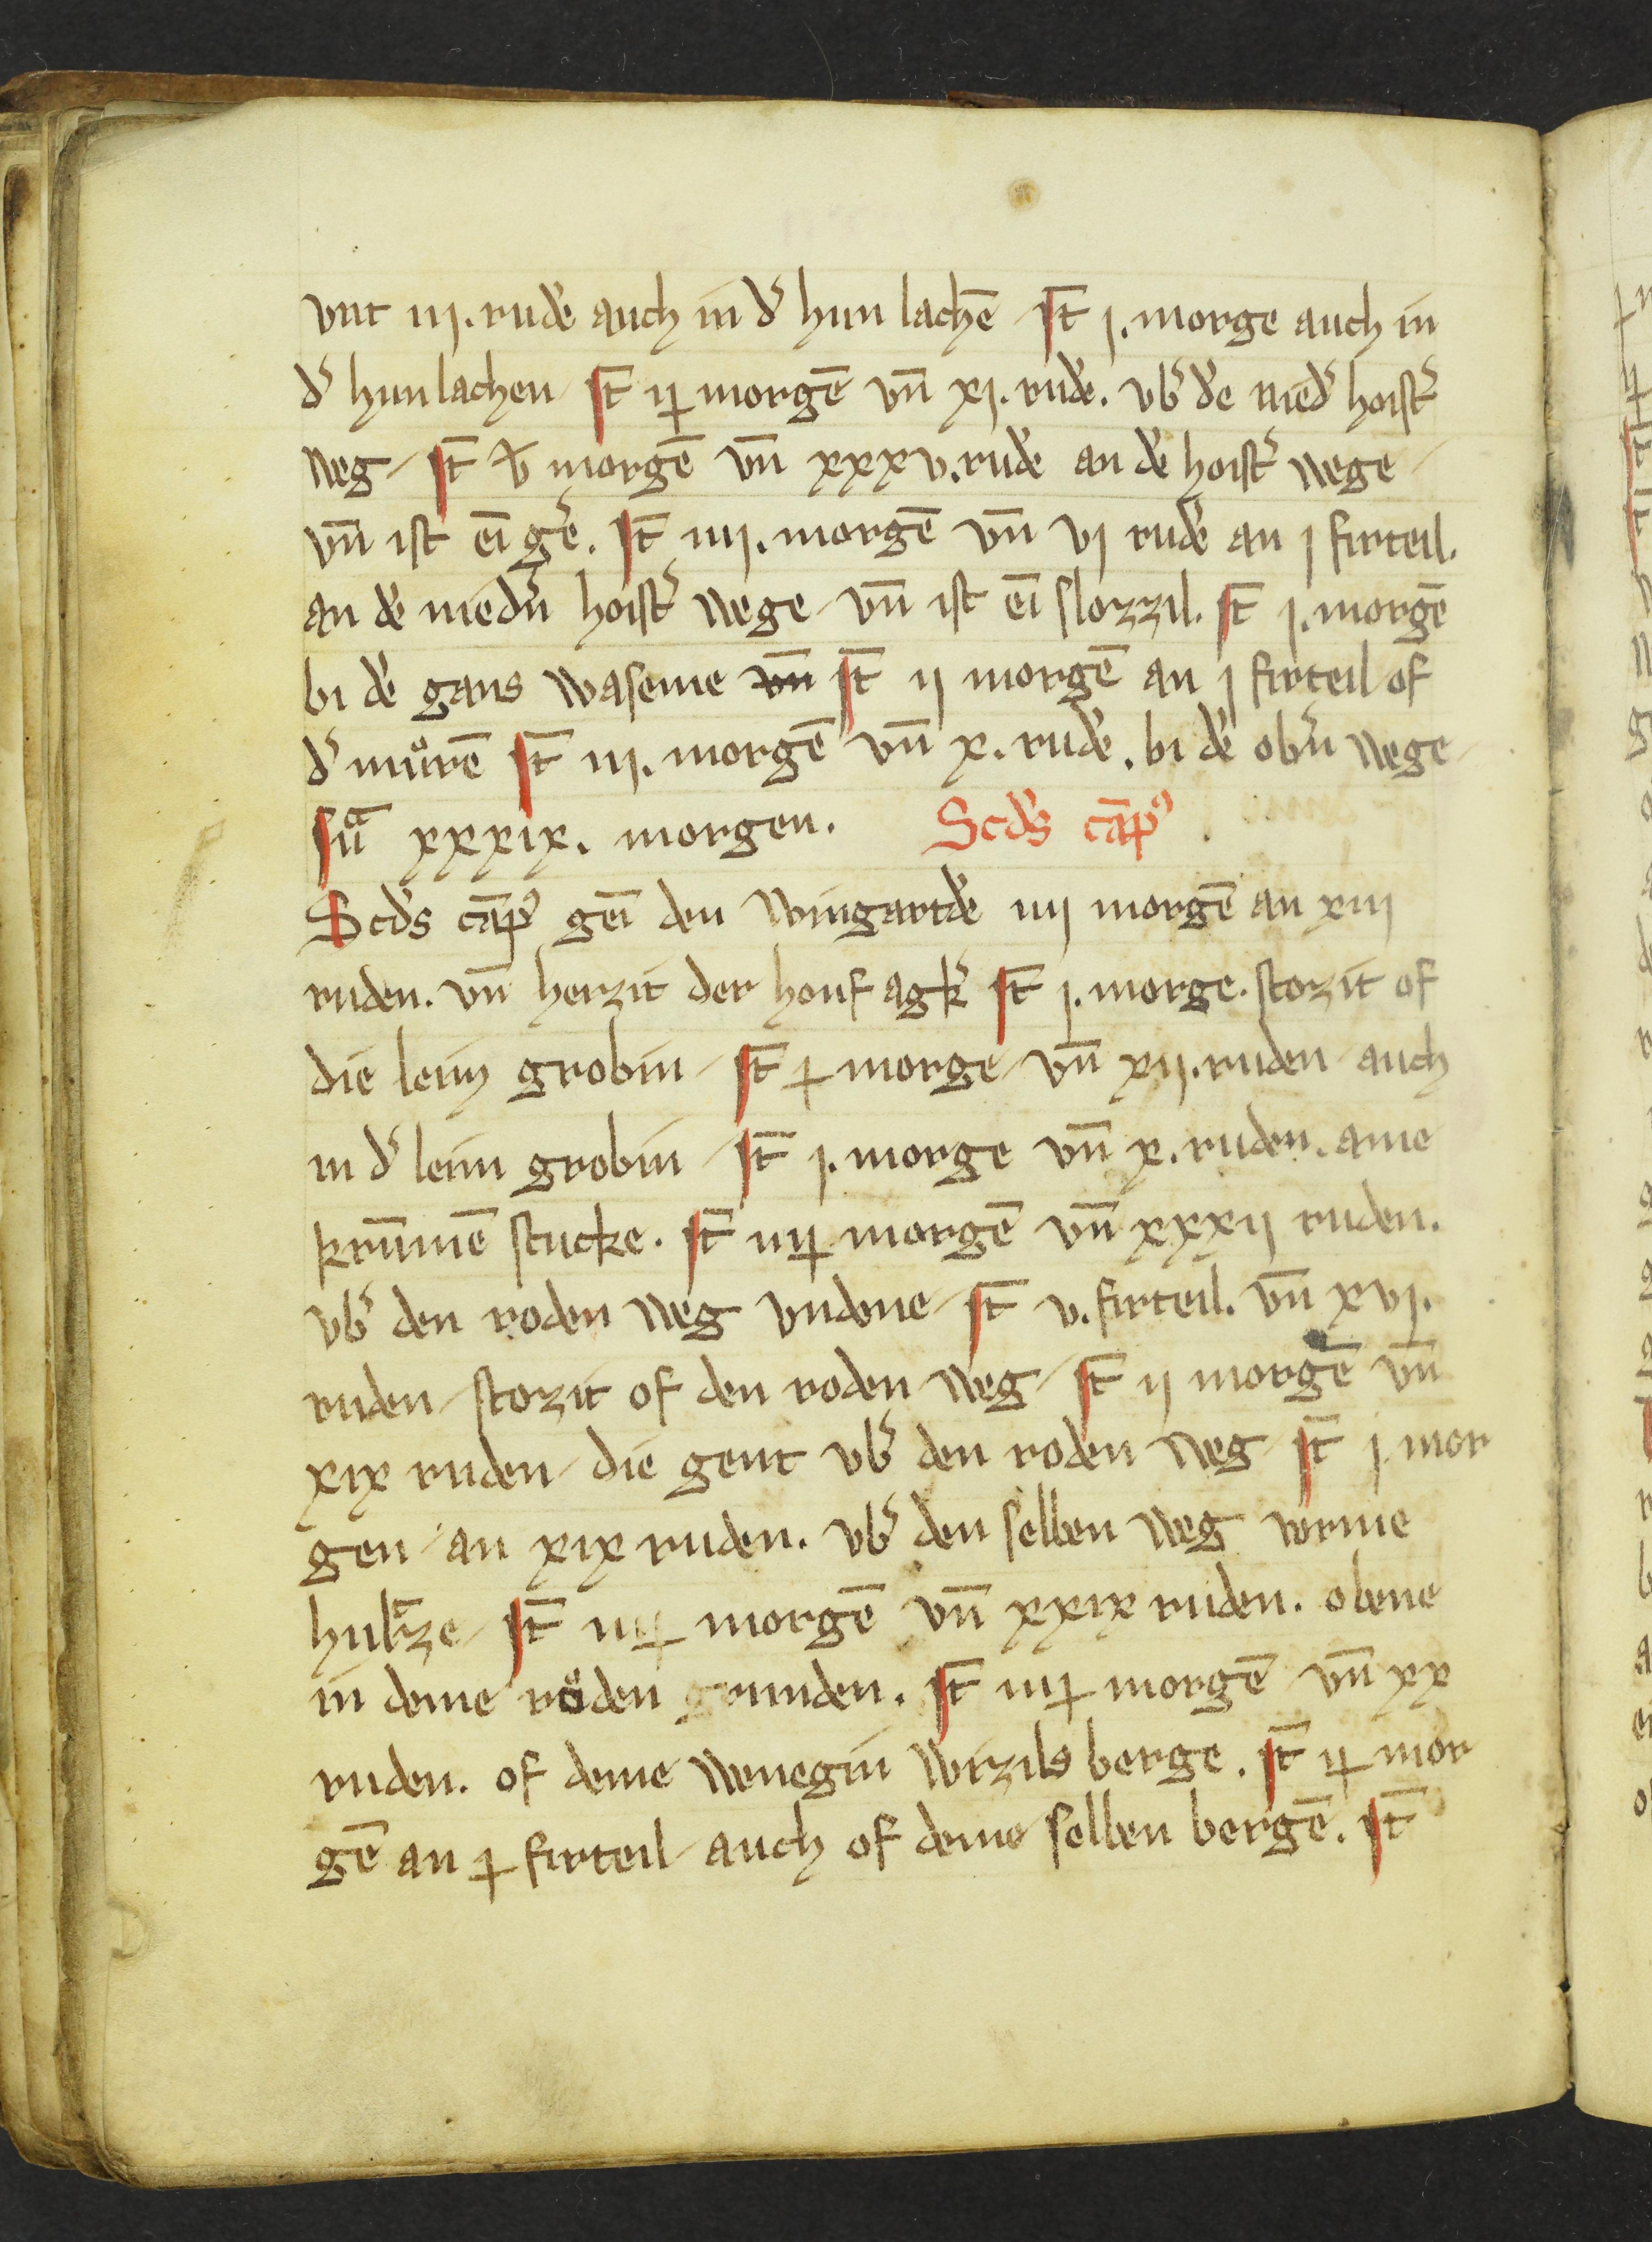 vnt iij. rudē auch in dˀ hun lachē st̄ j. morge auch in
dˀ hunlachen st̄ ij morgē vn̄ xj. rudē. vbˀ dē niedˀ hoistˀ
weg st̄ v morgē vn̄ xxxv. rudē an dē hoistˀ wege
vn̄ ist eī gˀē. st̄ iiij. morgē vn̄ vj rudē an j firteil.
an dē niedˀn hoistˀ wege vn̄ ist eī slozzil. st̄ j. morgē
bi dē gans waseme vn̄ st̄ ij morgē an j firteil of
dˀ muͦrē st̄ iij. morgē vn̄ x. rudē. bi dē obˀn wege
su͞a xxxix. morgen. Scd̓s cāpꝰ
Scd̓s cāpꝰ geī den wingartdē iiij morgē an xiij
ruden. vn̄ herzit der houf agkˀ st̄ j. morge. stozit of
die leim grobin st̄ j morge vn̄ xij. ruden auch
in dˀ leim grobin st̄ j. morge vn̄ x. ruden. ame
krūmē stucke. st̄ iiij morgē vn̄ xxxij ruden.
vbˀ den roden weg vndene st̄ v. firteil. vn̄ xvj.
ruden stozit of den roden weg st̄ ij morgē vn̄
xix ruden die gent vbˀ den roden weg st̄ j. mor
gen an xix ruden. vbˀ den selben weg vorme
st̄ iij morgē vn̄ xxix ruden. obene
in deme roͤden grunden. st̄ iiij morgē vn̄ xx
ruden. of deme wenegin wizils berge. st̄ ij mor
gē an j firteil auch of deme selben bergē. st̄